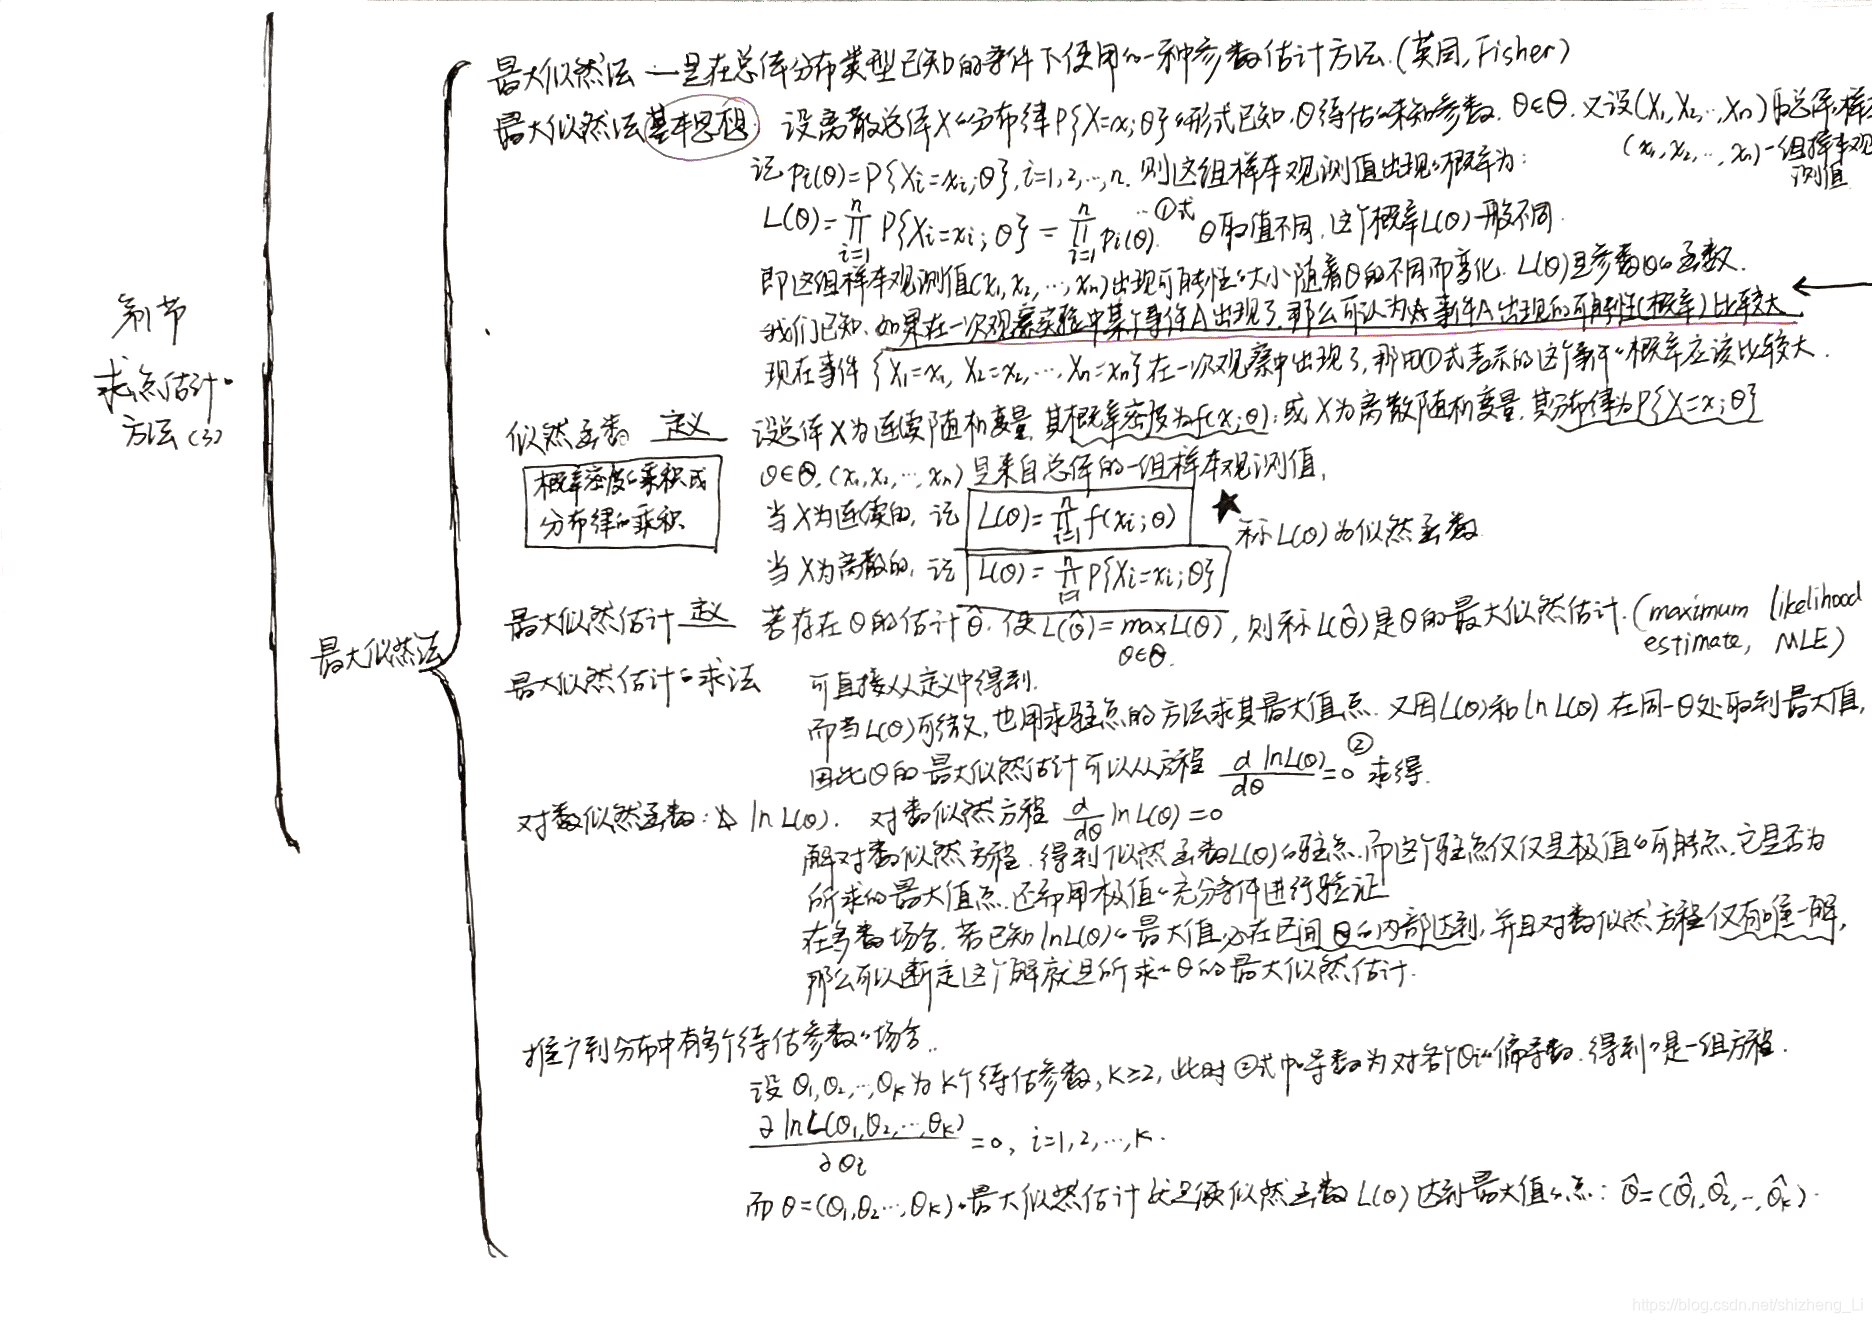 最大似然法 — 是在总体分布类型已知的条件下使用的一种参数估计方法.(英国, Fisher)
最大似然法基本思想 设离散总体X的分布律P{X=x;θ}的形式已知,θ待估的未知参数. θ∈Θ. 又设(X₁,X₂,…,Xn)取总体样本
(x₁,x₂,…,xn)一组样本观
测值
记 pi(θ)=P{Xi=xi;θ}, i=1,2,…,n. 则这组样本观测值出现的概率为:
L(θ)=∏ⁿᵢ₌₁ P{Xi=xi;θ} = ∏ⁿᵢ₌₁ pi(θ). …①式 θ取值不同,这个概率L(θ)一般不同.
即这组样本观测值(x₁,x₂,…,xn)出现可能性的大小随着θ的不同而变化. L(θ)是参数θ的函数.
我们已知.如果在一次观察实验中某个事件A出现了,那么可认为事件A出现的可能性(概率)比较大
现在事件{X₁=x₁, X₂=x₂,…,Xn=xn}在一次观察中出现了,那由①式表示的这个事件的概率应该比较大.
第1节
求点估计的
方法(3)
似然函数 定义 设总体X为连续随机变量,其概率密度为f(x;θ);或X为离散随机变量,其分布律为P{X=x;θ}
概率密度的乘积或
分布律的乘积.
θ∈Θ.(x₁,x₂,…,xn)是来自总体的一组样本观测值,
当X为连续的, 记 L(θ)=∏ⁿᵢ₌₁ f(xi;θ) ★
称L(θ)为似然函数
当X为离散的, 记 L(θ)=∏ⁿᵢ₌₁ P{Xi=xi;θ}
最大似然估计 定义 若存在θ的估计θ̂. 使L(θ̂)=max L(θ), 则称L(θ̂)是θ的最大似然估计.(maximum likelihood
θ∈Θ. estimate, MLE)
最大似然法
最大似然估计的求法 可直接从定义中得到.
而当L(θ)可微, 也用求驻点的方法求其最大值点. 又因L(θ)和lnL(θ)在同一θ处取到最大值,
因此θ的最大似然估计可以从方程 d lnL(θ)/dθ=0 ② 求得.
对数似然函数: ☆ lnL(θ). 对数似然方程 d/dθ lnL(θ)=0
解对数似然方程.得到似然函数L(θ)的驻点.而这个驻点仅仅是极值的可能点,它是否为
所求的最大值点.还需用极值的充分条件进行验证
在多数场合.若已知lnL(θ)的最大值必在区间Θ的内部达到,并且对数似然方程仅有唯一解,
那么可以断定这个解就是所求的θ的最大似然估计.
推广到分布中有多个待估参数的场合..
设θ₁,θ₂,…,θk为k个待估参数, k≥2, 此时②式中导数为对各个θi的偏导数.得到的是一组方程.
∂lnL(θ₁,θ₂,…,θk)/∂θi=0, i=1,2,…,k.
而θ=(θ₁,θ₂…,θk)的最大似然估计就是使似然函数L(θ)达到最大值的点: θ̂=(θ̂₁,θ̂₂,…,θ̂k).
https://blog.csdn.net/shizheng_Li